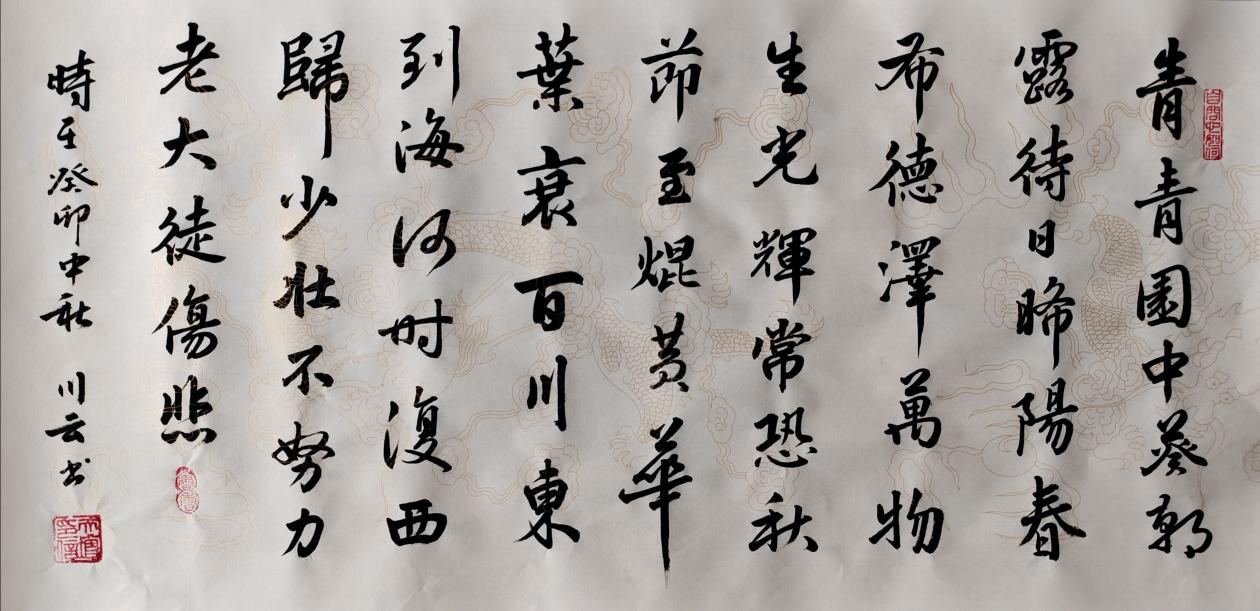 青青園中葵朝
露待日晞陽春
布德澤萬物
生光輝常恐秋
節至焜黃華
葉衰百川東
到海何时復西
歸少壯不努力
老大徒傷悲
時至癸卯中秋 川云书